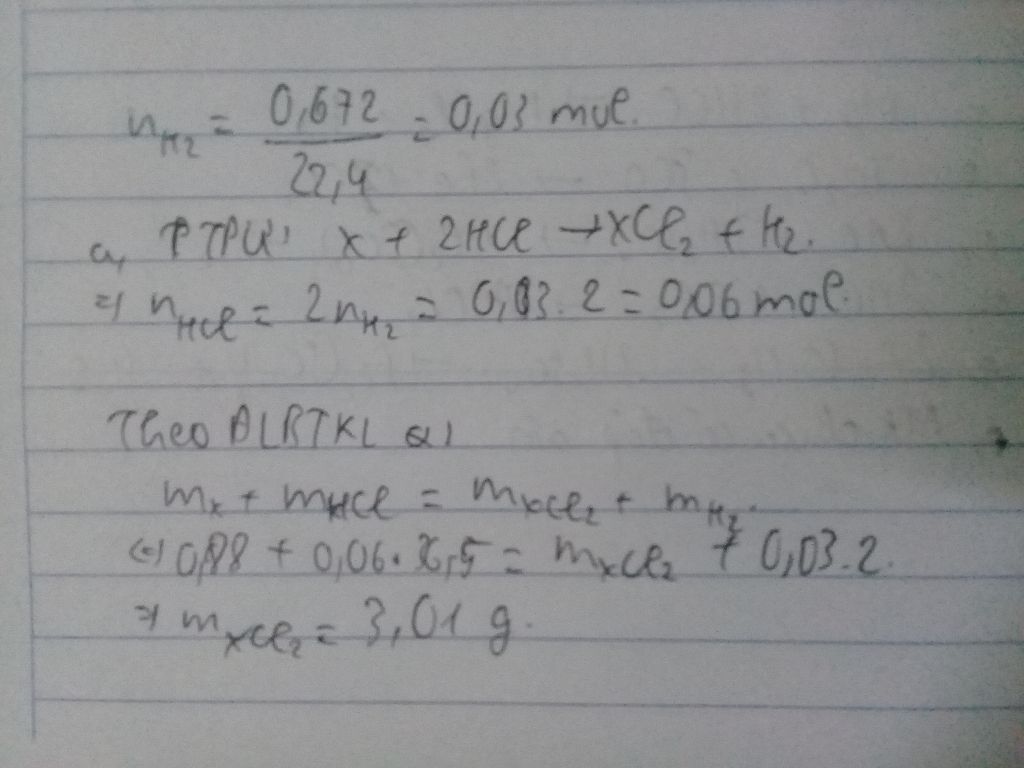 n_H2 = 0,672 / 22,4 = 0,03 mol.
a, PTPƯ: X + 2HCl → XCl2 + H2.
=> n_HCl = 2n_H2 = 0,03 . 2 = 0,06 mol.
Theo ĐLBTKL
m_X + m_HCl = m_XCl2 + m_H2.
(=) 0,88 + 0,06 . 36,5 = m_XCl2 + 0,03 . 2.
=> m_XCl2 = 3,01 g.